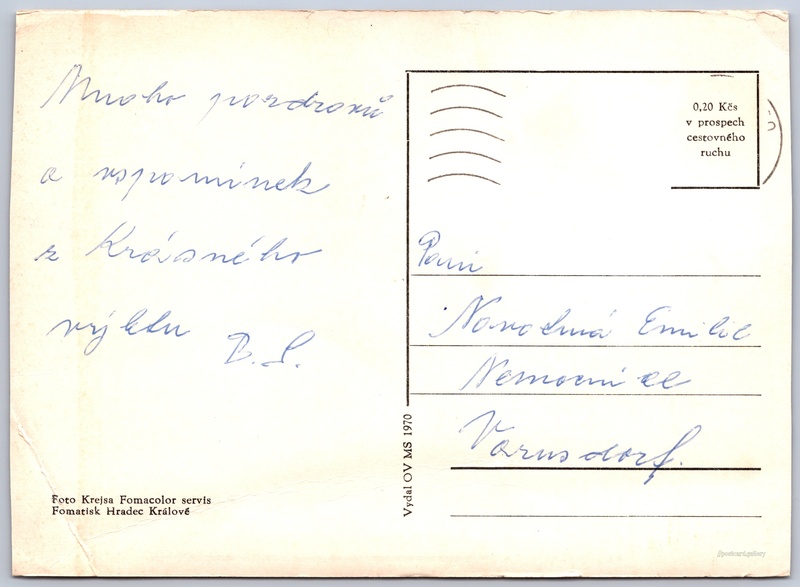 Mnoho pozdravů
a vzpomínek
z Krásného
výletu B. S.
0,20 Kčs
v prospech
cestovného
ruchu
Paní
Novotná Emilie
Nemocnice
Varnsdorf.
Vydal OV MS 1970
Foto Krejsa Fomacolor servis
Fomatisk Hradec Králové